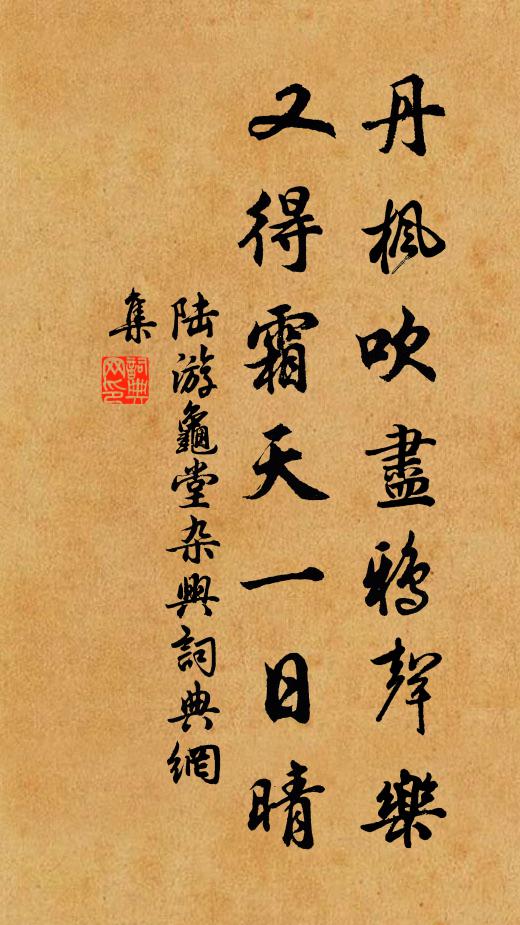 丹楓吹盡鴉聲樂
又得霜天一日晴
陸游龜堂杂興詞典網
集
詞典
网印